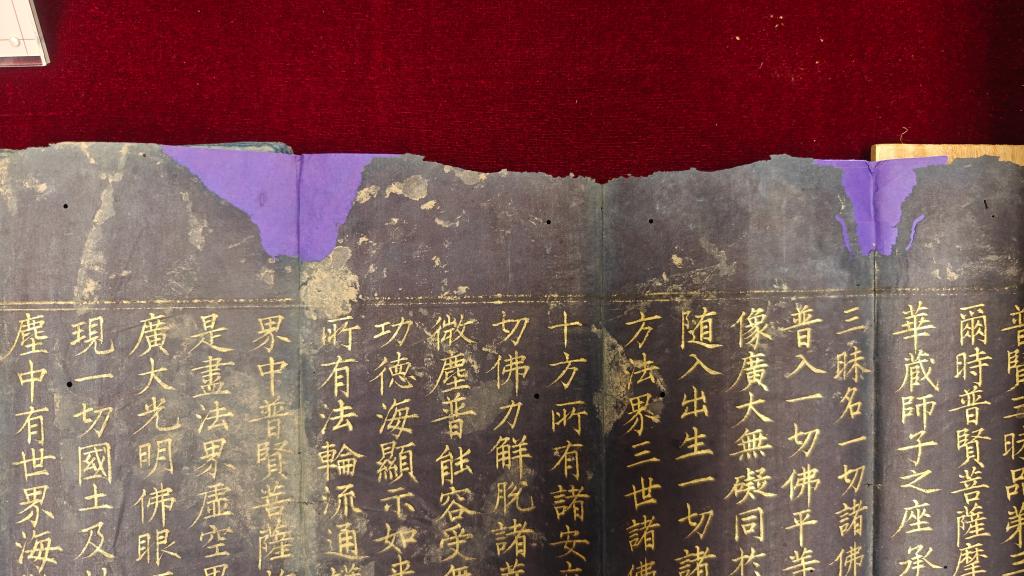 普賢三昧品第三
爾時普賢菩薩摩
華蔵師子之座承
三昧名一切諸佛
普入一切佛平等
像廣大無礙同於
随入出生一切諸
方法界三世諸佛
十方所有諸安立
切佛力解脫諸菩
微塵普能容受無
功德海顯示如来
所有法輪流通
界中普賢菩薩
是盡法界虛空界
廣大光明佛眼
現一切國土及
塵中有世界海